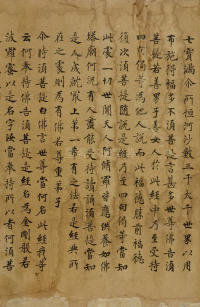 七寶滿尒所恒河沙數三千大千世界以用
布施得福多不須菩提言甚多世尊佛告須
菩提若善男子善女人於此經中乃至受持
四句偈等為他人說而此福德勝前福德
復次須菩提隨說是經乃至四句偈等當知
此處一切世間天人阿修羅皆應供養如佛
塔廟何況有人盡能受持讀誦須菩提當知
是人成就最上第一希有之法若是經典所
在之處則為有佛若尊重弟子
尒時須菩提白佛言世尊當何名此經我等
云何奉持佛告須菩提是經名為金剛般若
波羅蜜以是名字汝當奉持所以者何須菩